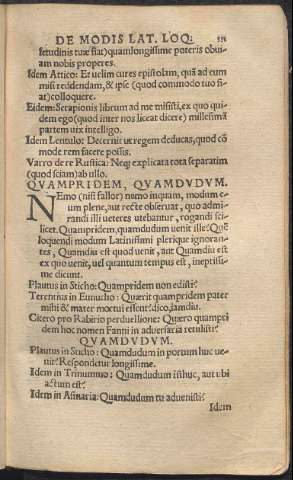 DE MODIS LAT. LOQ:
letudinis tuæ fiat) quam longissime poteris obui-
am nobis properes.
Idem Attico: Et uelim cures epistolam, quã ad eum
misi reddendam, & ipse (quod commodo tuo fi-
at) colloquere.
Eidem: Serapionis librum ad me misisti, ex quo qui-
dem ego (quod inter nos liceat dicere) millesimã
partem uix intelligo.
Idem Lentulo: Decernit ut regem deducas, quod cõ
mode rem facere possis.
Varro de re Rustica: Neq; explicata tota separatim
(quod sciam) ab ullo.
QVAMPRIDEM, QVAMDVDVM.
NEmo (nisi fallor) nemo inquam, modum e-
um plene, aut recte obseruat, quo admi-
randi illi ueteres utebantur, rogandi sci-
licet. Quampridem, quamdudum uenit ille? Quẽ
loquendi modum Latinissimi plerique ignoran-
tes, Quamdiu est quod uenit, aut Quamdiu est
ex quo uenit, uel quantum tempus est, ineptissi-
me dicunt.
Plautus in Sticho: Quampridem non edisti?
Terentius in Eunucho: Quærit quampridem pater
mihi & mater mortui essent? dico, iamdiu.
Cicero pro Rabirio perduellione: Quæro quampri
dem hoc nomen Fanni in aduersaria retulisti?
QVAMDVDVM.
Plautus in Sticho: Quamdudum in portum huc ue-
nit? Respondetur longissime.
Idem in Trinummo: Quamdudum isthuc, aut ubi
actum est?
Idem in Asinaria: Quamdudum tu aduenisti?
Idem